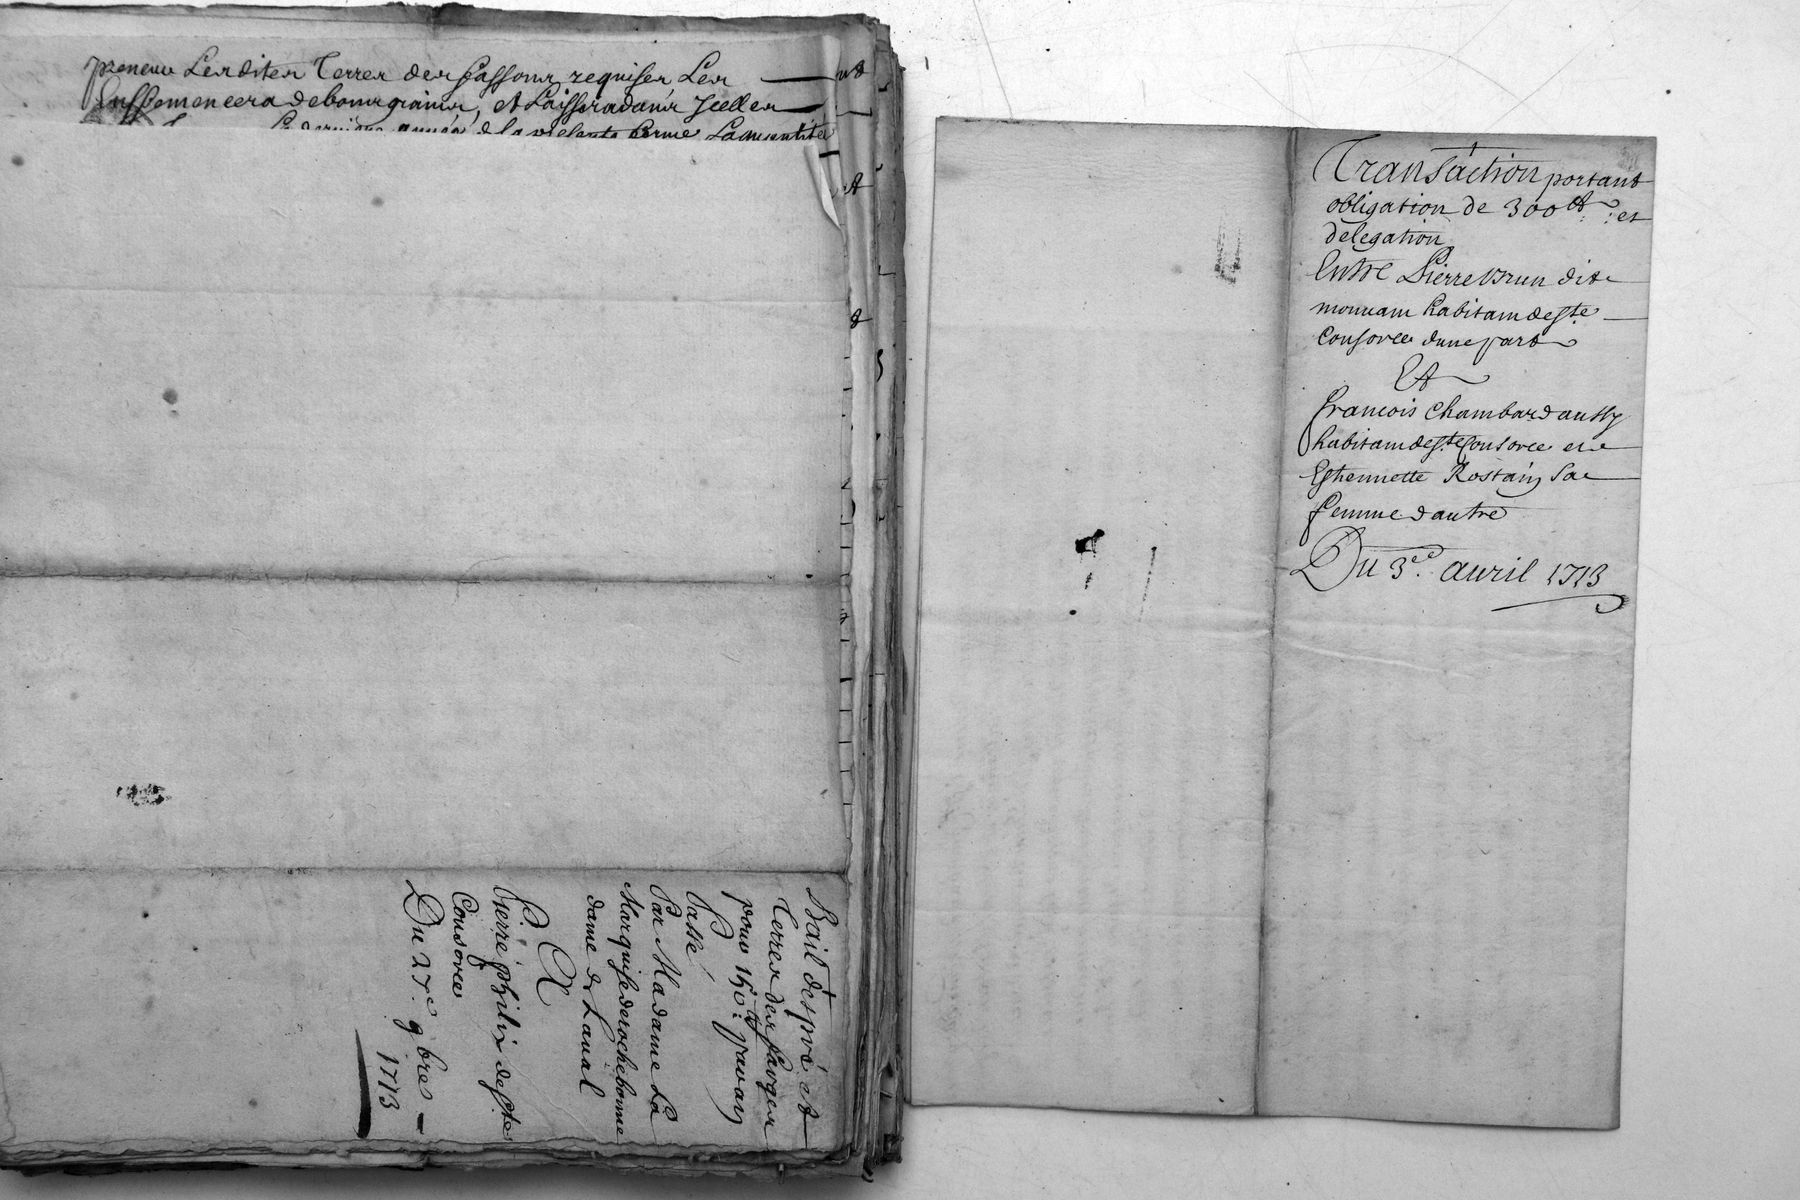 preneur Lesdites Terres des saisons requises Les
Enssemencera debons grains, et Laissera dans Jcelles
La derniere année de la presente ferme La quantité
Bail després et
Terres des farges
pour 150tt par an
Passé
Par Madame La
Marquise de rochebonne
dame de Laual
A
Pierre philix de ste
Consorce
Du 27e 9bre
1713
Transaction portant
obligation de 300tt et
delegation
Entre Pierre Brun dit
monuam habitam de ste
Consorce dune part
Et
francois Chambard aussy
habitam de ste Consorce et
Esthennette Rostain Sa
femme dautre
Du 3e auril 1713